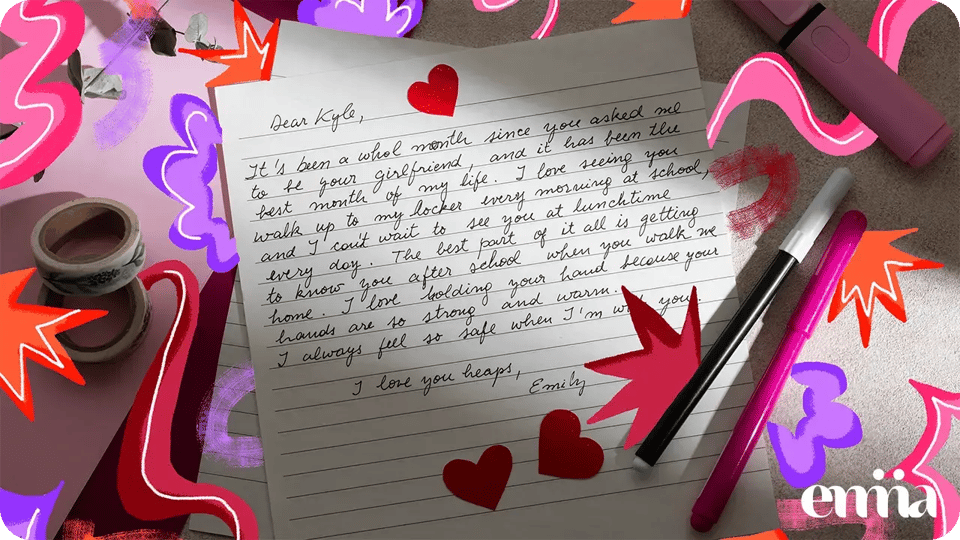 Dear Kyle,
It's been a whol month since you asked me
to be your girlfriend, and it has been the
best month of my life. I love seeing you
walk up to my locker every morning at school,
and I can't wait to see you at lunchtime
every day. The best part of it all is getting
to know you after school when you walk me
home. I love holding your hand because your
hands are so strong and warm.
I always feel so safe when I'm you.
I love you heaps,
Emily